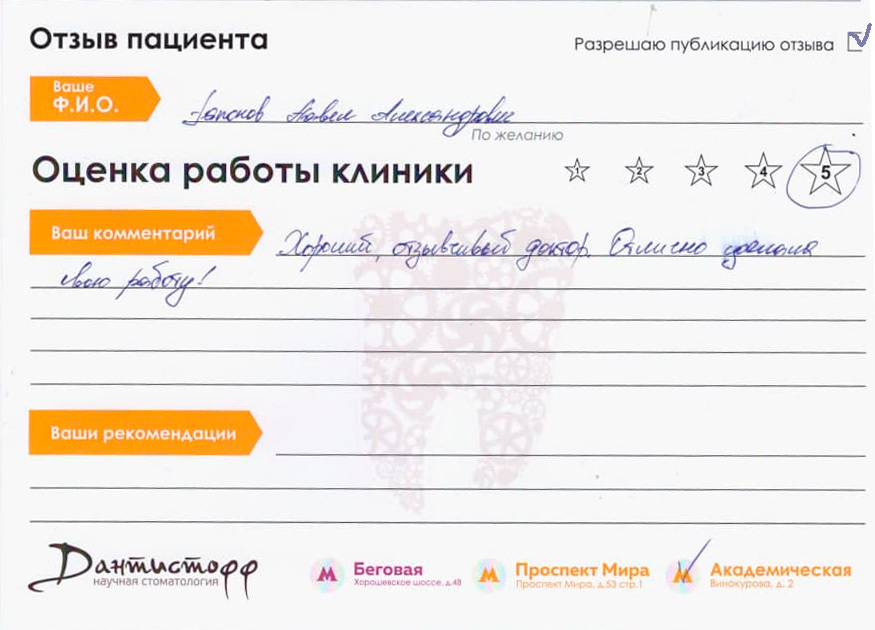 Отзыв пациента
Разрешаю публикацию отзыва
Ваше
Ф.И.О.
Павел Александрович
По желанию
Оценка работы клиники
1 2 3 4 5
Ваш комментарий
Хороший, отзывчивый доктор. Отлично сделала
свою работу!
Ваши рекомендации
Дантистофф
научная стоматология
М Беговая
Хорошевское шоссе, д.48
М Проспект Мира
Проспект Мира, д.53 стр.1
М Академическая
Винокурова, д. 2